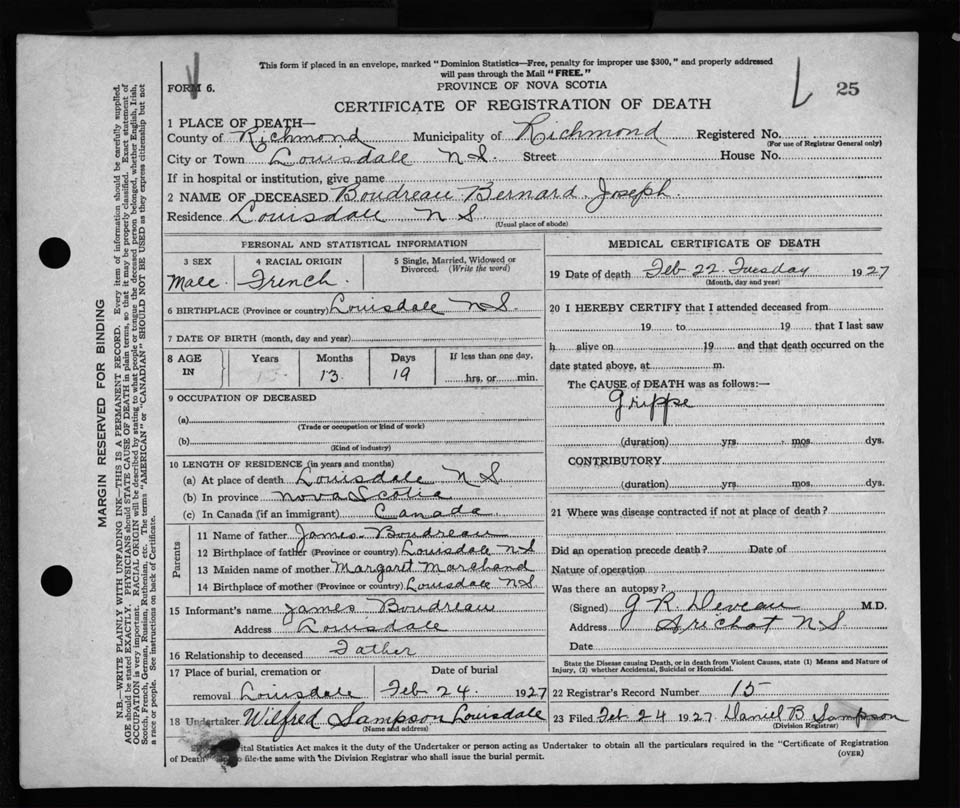 This form if placed in an envelope, marked "Dominion Statistics—Free, penalty for improper use $300," and properly addressed
will pass through the Mail "FREE."
FORM 6.
PROVINCE OF NOVA SCOTIA
25
CERTIFICATE OF REGISTRATION OF DEATH
1 PLACE OF DEATH—
County of Richmond Municipality of Richmond Registered No.
(For use of Registrar General only)
City or Town Louisdale N S. Street House No.
If in hospital or institution, give name
2 NAME OF DECEASED Boudreau Bernard Joseph.
Residence Louisdale N S
(Usual place of abode)
PERSONAL AND STATISTICAL INFORMATION
3 SEX 4 RACIAL ORIGIN 5 Single, Married, Widowed or
Divorced. (Write the word)
Male. French.
6 BIRTHPLACE (Province or country) Louisdale N S.
7 DATE OF BIRTH (month, day and year)
8 AGE Years Months Days If less than one day,
IN 13 19 hrs. or min.
9 OCCUPATION OF DECEASED
(a)
(Trade or occupation or kind of work)
(b)
(Kind of industry)
10 LENGTH OF RESIDENCE (in years and months)
(a) At place of death Louisdale N S
(b) In province Nova Scotia
(c) In Canada (if an immigrant) Canada
Parents
11 Name of father James Boudreau
12 Birthplace of father (Province or country) Louisdale N S
13 Maiden name of mother Margaret Marchand
14 Birthplace of mother (Province or country) Louisdale N S
15 Informant's name James Boudreau
Address Louisdale
16 Relationship to deceased Father
17 Place of burial, cremation or Date of burial
removal Louisdale Feb 24. 1927
18 Undertaker Wilfred Sampson Louisdale
(Name and address)
MEDICAL CERTIFICATE OF DEATH
19 Date of death Feb 22. Tuesday 1927
(Month, day and year)
20 I HEREBY CERTIFY that I attended deceased from
19 to 19 that I last saw
h alive on 19 and that death occurred on the
date stated above, at m.
The CAUSE of DEATH was as follows:—
Grippe
(duration) yrs. mos. dys.
CONTRIBUTORY
(duration) yrs. mos. dys.
21 Where was disease contracted if not at place of death?
Did an operation precede death? Date of
Nature of operation
Was there an autopsy?
(Signed) G R. Deveau M.D.
Address Arichat N S.
Date
State the Disease causing Death, or in death from Violent Causes, state (1) Means and Nature of
Injury, (2) whether Accidental, Suicidal or Homicidal.
22 Registrar's Record Number 15
23 Filed Feb 24 1927 Daniel B Sampson
(Division Registrar)
ital Statistics Act makes it the duty of the Undertaker or person acting as Undertaker to obtain all the particulars required in the "Certificate of Registration
of Death" to file the same with the Division Registrar who shall issue the burial permit. (OVER)
MARGIN RESERVED FOR BINDING
N.B.—WRITE PLAINLY WITH UNFADING INK—THIS IS A PERMANENT RECORD. Every item of information should be carefully supplied.
AGE should be stated EXACTLY. PHYSICIANS should STATE CAUSE OF DEATH in plain terms, so that it may be properly classified. Exact statement of
OCCUPATION is very important. RACIAL ORIGIN will be described by stating to what people or tongue the deceased person belonged, whether English, Irish,
Scotch, French, German, Russian, Ruthenian, etc. The terms "AMERICAN" or "CANADIAN" SHOULD NOT BE USED as they express citizenship but not
a race or people. See instructions on back of Certificate.